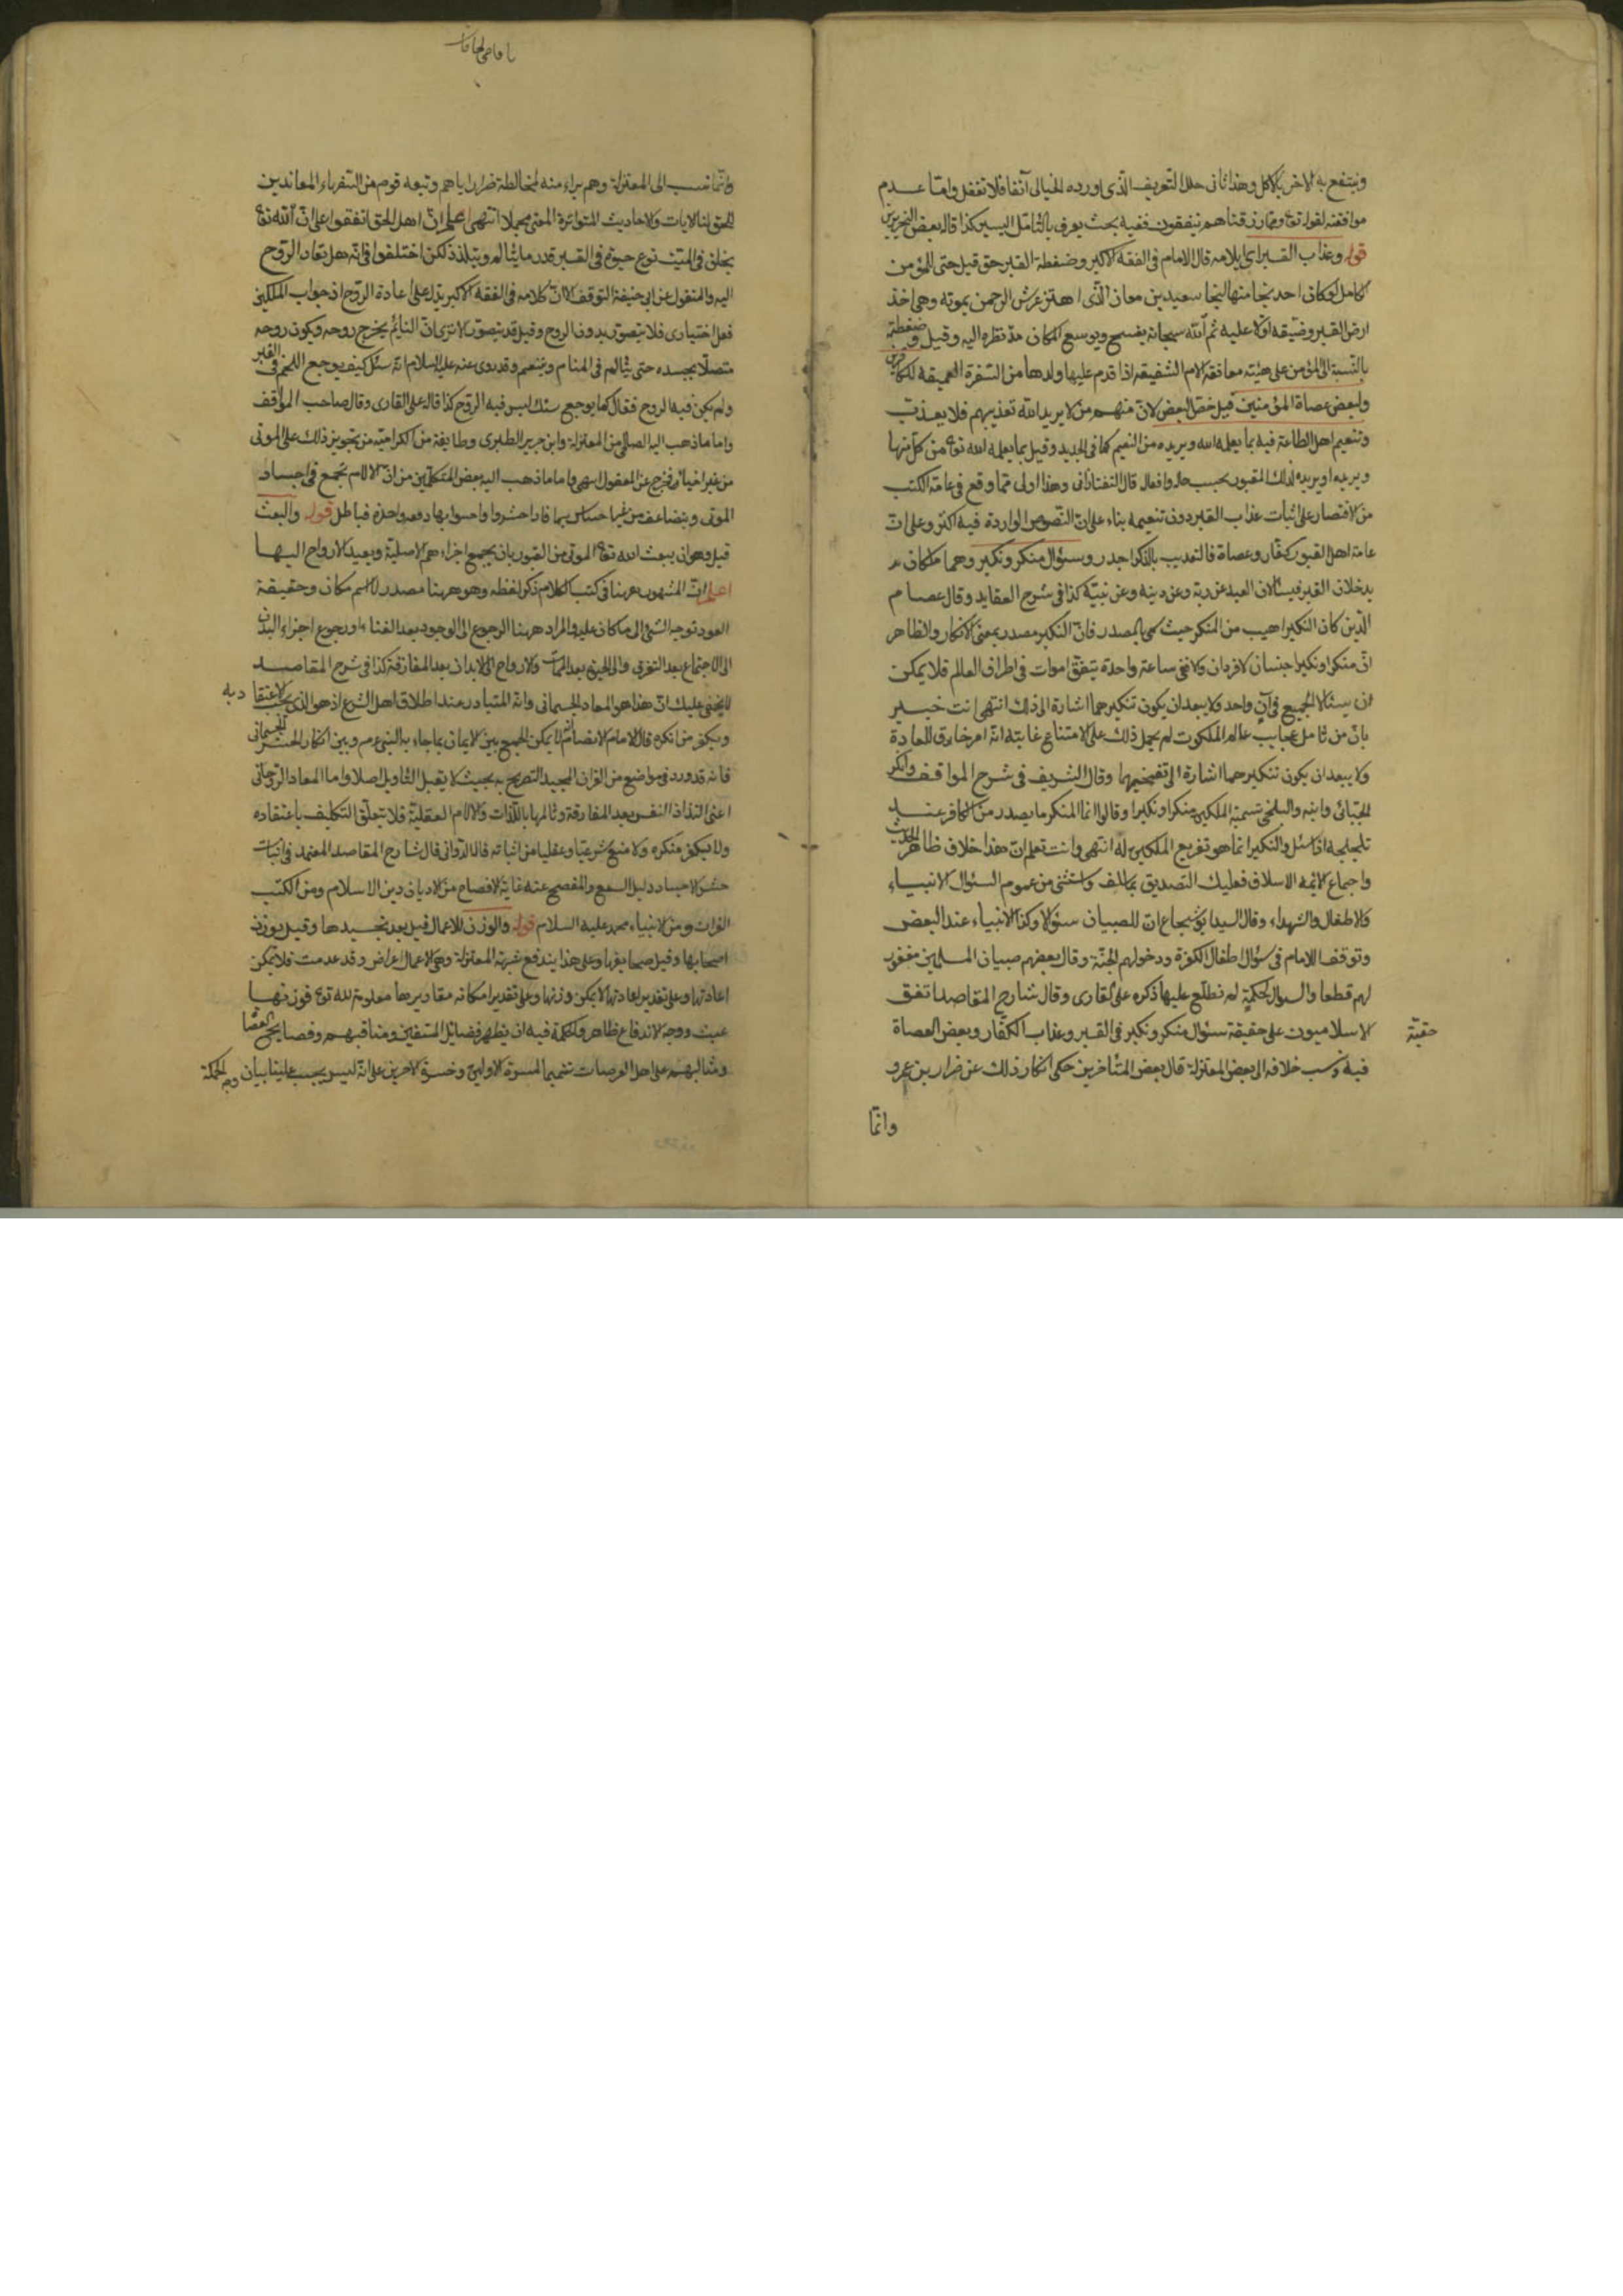 وينتفع به الاخر بالاكل وهذا ثانى حلل التعريف الذى اورده الخيالى آنفا فلا تغفل واما عدم
موافقته لقوله تع ومما رزقناهم ينفقون ففيه بحث يعرف بالتأمل اليسير كذا قاله بعض النحريرين
قوله وعذاب القبر اى ايلامه قال الامام فى الفقه الاكبر وضغطة القبر حق قيل حتى للمؤمن
الكامل لو كان احد نجا منها لنجا سعيد بن معاذ الذى اهتز عرش الرحمن بموته وهى اخذ
ارض القبر وضيقه اولا عليه ثم الله سبحانه يفسح ويوسع المكان مد نظره اليه وقيل وضغطته
بالنسبة الى المؤمن على هيئته معانقة الام الشفيقة اذا قدم عليها ولدها من السفرة العميقة للكافرين
ولبعض عصاة المؤمنين قيل خص البعض لان منهم من لا يريد الله تعذيبهم فلا يعذب
وتنعيم اهل الطاعة فيه بما يعلمه الله ويريده من النعيم كما فى الجديد وقيل بما يعلمه الله تع من كل منها
ويريده او يريده لذلك المقبور بحسب حاله وافعاله قال التفتازانى وهذا اولى مما وقع فى عامة الكتب
من الاقتصار على اثبات عذاب القبر دون تنعيمه بناء على ان النصوص الواردة فيه اكثر وعلى ان
عامة اهل القبور كفار وعصاة فالتعذيب بالذكر اجدر وسئوال منكر ونكير وهما ملكان
يدخلان القبر فيسئلان العبد عن ربه وعن دينه وعن نبيه كذا فى شرح العقايد وقال عصام
الدين كان النكير اهيب من المنكر حيث سمى بالمصدر فان النكير مصدر بمعنى الانكار والظاهر
ان منكرا ونكيرا جنسان لا فردان والا ففى ساعة واحدة يتفق اموات فى اطراف العالم فلا يمكن
ان يسئلا الجميع فى آن واحد فلا يبعد ان يكون تنكيرهما اشارة الى ذلك انتهى انت خبير
بان من تامل عجايب عالم الملكوت لم يحمل ذلك على الامتناع غايته انه امر خارق للعادة
ولا يبعد ان يكون تنكيرهما اشارة الى تفخيمهما وقال الشريف فى شرح المواقف وانكر
الجبائى وابنه والبلخى تسمية الملكين منكرا ونكيرا وقالوا انما المنكر ما يصدر من الكافر عند
تلجلجه اذا سئل والنكير انما هو تقريع الملكين له انتهى وانت تعلم ان هذا خلاف ظاهر الحديث
واجماع الائمة الاسلاف فعليك التصديق بما للف واستثنى من عموم السئوال الانبياء
والاطفال والشهداء وقال السيد ابو شجاع ان للصبيان سئوالا وكذا الانبياء عند البعض
وتوقف الامام فى سئوال اطفال الكفرة ودخولهم الجنة وقال بعضهم صبيان المسلمين مغفور
لهم قطعا والسئوال لحكمة لم نطلع عليها ذكره على القارى وقال شارح المقاصد اتفق
الاسلاميون على حقيقة سئوال منكر ونكير فى القبر وعذاب الكفار وبعض العصاة
حقية
فيه ونسب خلافه الى بعض المعتزلة قال بعض المتأخرين حكى انكار ذلك عن ضرار بن عمرو
وانما
يا قاضى الحاجات
وانما نسب الى المعتزلة وهم براء منه لمخالطة ضرار اياهم وتبعه قوم من السفهاء المعاندين
للحق لنا الايات والاحاديث المتواترة المعنى مجملا انتهى اعلم ان اهل الحق اتفقوا على ان الله تع
يخلق فى الميت نوع حيوة فى القبر قدر ما يتألم ويتلذذ لكن اختلفوا فى انه هل تعاد الروح
اليه والمنقول عن ابى حنيفة التوقف الا ان كلامه فى الفقه الاكبر يدل على اعادة الروح اذ جواب الملكين
فعل اختيارى فلا يتصور بدون الروح وقيل قد يتصور الا ترى ان النائم يخرج روحه ويكون روحه
متصلا بجسده حتى يتألم فى المنام ويتنعم وقد روى عنه عليه السلام انه سئل كيف يوجع اللحم فى القبر
ولم يكن فيه الروح فقال كما يوجع سنك ليس فيه الروح كذا قاله على القارى وقال صاحب المواقف
واما ما ذهب اليه الصالحى من المعتزلة وابن جرير الطبرى وطايفة من الكرامية من تجويز ذلك على الموتى
من غير احياء فخرج عن المعقول انتهى واما ما ذهب اليه بعض المتكلمين من ان الالام تجمع فى اجساد
الموتى ويتضاعف من غير احساس بها فاذا حشروا واحسوا بها دفعه واحدة فباطل قوله والبعث
قيل وهو ان يبعث الله تع الموتى من القبور بان يجمع اجزاءهم الاصلية ويعيد الارواح اليها
اعلم ان المشهور ههنا فى كتب الكلام ذكر لفظه وهو ههنا مصدر لا اسم مكان وحقيقة
العود توجه الشئ الى ما كان عليه والمراد ههنا الرجوع الى الوجود بعد الفناء او رجوع اجزاء البدن
الى الاجتماع بعد التفرق والى الحيوة بعد الممات والارواح الى الابدان بعد المفارقة كذا فى شرح المقاصد
لا يخفى عليك ان هذا هو المعاد الجسمانى وانه المتبادر عند اطلاق اهل الشرع اذ هو الذى يجب الاعتقاد به
ويكفر من انكره قال الامام الانصاف انه لا يمكن الجمع بين الايمان بما جاء به النبى عم وبين انكار الحشر الجسمانى
فانه قد ورد فى مواضع من القران المجيد التصريح به بحيث لا يقبل التأويل اصلا واما المعاد الروحانى
اعنى التذاذ النفس بعد المفارقة وتألمها باللذات والالام العقلية فلا يتعلق التكليف باعتقاده
ولا يكفر منكره ولا منع شرعيا وعقليا من اثباته قاله الدوانى قال شارح المقاصد المعتمد فى اثبات
حشر الاجساد دليل السمع والمفصح عنه غاية الافصاح من الاديان دين الاسلام ومن الكتب
القران ومن الانبياء محمد عليه السلام قوله والوزن للاعمال قيل بعد تجسيدها وقيل يوزن
اصحابها وقيل صحايفها وعلى هذا يندفع شبهة المعتزلة وهى الاعمال اعراض وقد عدمت فلا يمكن
اعادتها وعلى تقدير اعادتها لا يمكن وزنها وعلى تقدير امكانه مقاديرها معلومة لله تع فوزنها
عبث ووجه الاندفاع ظاهر والحكمة فيه ان يظهر فضائل المتقين ومناقبهم وفضايح العصاة
ومثالبهم على اهل العرصات تتميما لمسرة الاولين وحسرة الاخرين على انه ليس يجب علينا بيان وجه الحكمة